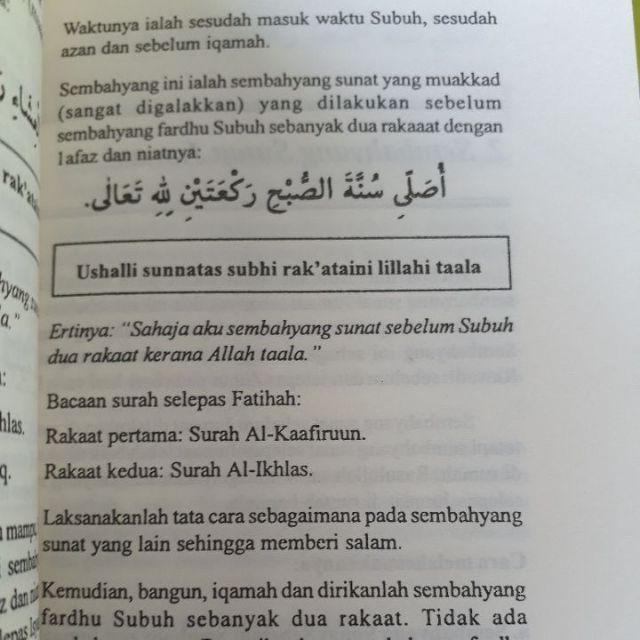 Waktunya ialah sesudah masuk waktu Subuh, sesudah
azan dan sebelum iqamah.
Sembahyang ini ialah sembahyang sunat yang muakkad
(sangat digalakkan) yang dilakukan sebelum
sembahyang fardhu Subuh sebanyak dua rakaaat dengan
lafaz dan niatnya:
أُصَلِّى سُنَّةَ الصُّبْحِ رَكْعَتَيْنِ لِلّٰهِ تَعَالٰى.
Ushalli sunnatas subhi rak'ataini lillahi taala
Ertinya: "Sahaja aku sembahyang sunat sebelum Subuh
dua rakaat kerana Allah taala."
Bacaan surah selepas Fatihah:
Rakaat pertama: Surah Al-Kaafiruun.
Rakaat kedua: Surah Al-Ikhlas.
Laksanakanlah tata cara sebagaimana pada sembahyang
sunat yang lain sehingga memberi salam.
Kemudian, bangun, iqamah dan dirikanlah sembahyang
fardhu Subuh sebanyak dua rakaat. Tidak ada